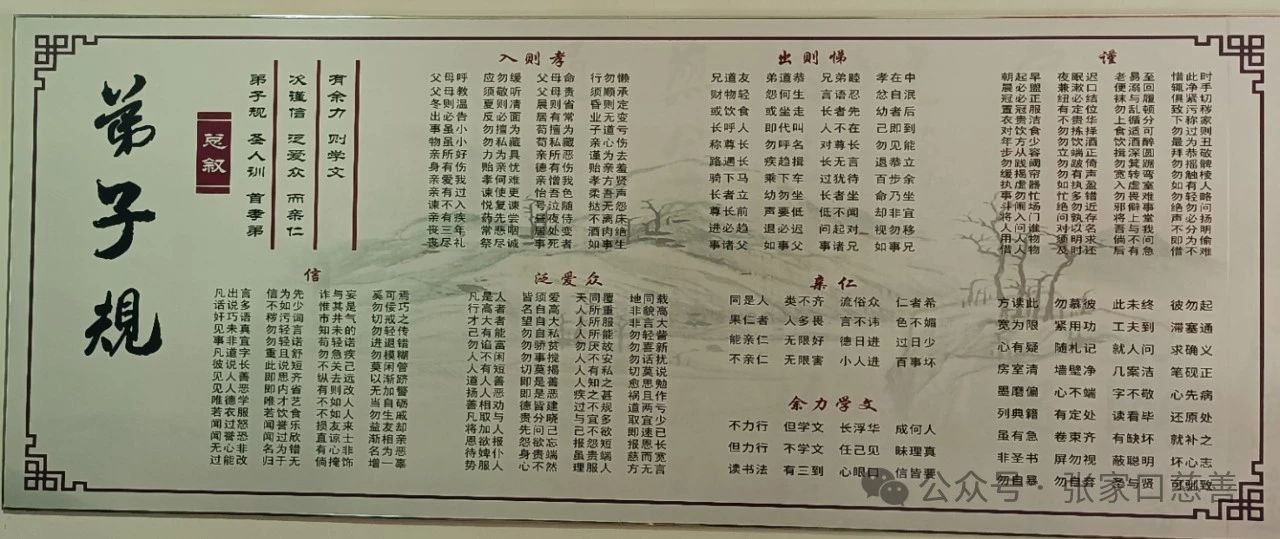 弟子規
总叙
弟子规 圣人训 首孝弟
次谨信 泛爱众 而亲仁
有余力 则学文
入则孝
父母呼 应勿缓 父母命 行勿懒
父母教 须敬听 父母责 须顺承
冬则温 夏则凊 晨则省 昏则定
出必告 反必面 居有常 业无变
事虽小 勿擅为 苟擅为 子道亏
物虽小 勿私藏 苟私藏 亲心伤
亲所好 力为具 亲所恶 谨为去
身有伤 贻亲忧 德有伤 贻亲羞
亲爱我 孝何难 亲憎我 孝方贤
亲有过 谏使更 怡吾色 柔吾声
谏不入 悦复谏 号泣随 挞无怨
亲有疾 药先尝 昼夜侍 不离床
丧三年 常悲咽 居处变 酒肉绝
丧尽礼 祭尽诚 事死者 如事生
出则悌
兄道友 弟道恭 兄弟睦 孝在中
财物轻 怨何生 言语忍 忿自泯
或饮食 或坐走 长者先 幼者后
长呼人 即代叫 人不在 己即到
称尊长 勿呼名 对尊长 勿见能
路遇长 疾趋揖 长无言 退恭立
骑下马 乘下车 过犹待 百步余
长者立 幼勿坐 长者坐 命乃坐
尊长前 声要低 低不闻 却非宜
进必趋 退必迟 问起对 视勿移
事诸父 如事父 事诸兄 如事兄
谨
朝起早 夜眠迟 老易至 惜此时
晨必盥 兼漱口 便溺回 辄净手
冠必正 纽必结 袜与履 俱紧切
置冠服 有定位 勿乱顿 致污秽
衣贵洁 不贵华 上循分 下称家
对饮食 勿拣择 食适可 勿过则
年方少 勿饮酒 饮酒醉 最为丑
步从容 立端正 揖深圆 拜恭敬
勿践阈 勿跛倚 勿箕踞 勿摇髀
缓揭帘 勿有声 宽转弯 勿触棱
执虚器 如执盈 入虚室 如有人
事勿忙 忙多错 勿畏难 勿轻略
斗闹场 绝勿近 邪僻事 绝勿问
将入门 问孰存 将上堂 声必扬
人问谁 对以名 吾与我 不分明
用人物 须明求 倘不问 即为偷
借人物 及时还 后有急 借不难
信
凡出言 信为先 诈与妄 奚可焉
话说多 不如少 惟其是 勿佞巧
奸巧语 秽污词 市井气 切戒之
见未真 勿轻言 知未的 勿轻传
事非宜 勿轻诺 苟轻诺 进退错
凡道字 重且舒 勿急疾 勿模糊
彼说长 此说短 不关己 莫闲管
见人善 即思齐 纵去远 以渐跻
见人恶 即内省 有则改 无加警
唯德学 唯才艺 不如人 当自砺
若衣服 若饮食 不如人 勿生戚
闻过怒 闻誉乐 损友来 益友却
闻誉恐 闻过欣 直谅士 渐相亲
无心非 名为错 有心非 名为恶
过能改 归于无 倘掩饰 增一辜
泛爱众
凡是人 皆须爱 天同覆 地同载
行高者 名自高 人所重 非貌高
才大者 望自大 人所服 非言大
己有能 勿自私 人所能 勿轻訾
勿谄富 勿骄贫 勿厌故 勿喜新
人不闲 勿事搅 人不安 勿话扰
人有短 切莫揭 人有私 切莫说
道人善 即是善 人知之 愈思勉
扬人恶 即是恶 疾之甚 祸且作
善相劝 德皆建 过不规 道两亏
凡取与 贵分晓 与宜多 取宜少
将加人 先问己 己不欲 即速已
恩欲报 怨欲忘 报怨短 报恩长
待婢仆 身贵端 虽贵端 慈而宽
势服人 心不然 理服人 方无言
亲仁
同是人 类不齐 流俗众 仁者希
果仁者 人多畏 言不讳 色不媚
能亲仁 无限好 德日进 过日少
不亲仁 无限害 小人进 百事坏
余力学文
不力行 但学文 长浮华 成何人
但力行 不学文 任己见 昧理真
读书法 有三到 心眼口 信皆要
方读此 勿慕彼 此未终 彼勿起
宽为限 紧用功 工夫到 滞塞通
心有疑 随札记 就人问 求确义
房室清 墙壁净 几案洁 笔砚正
墨磨偏 心不端 字不敬 心先病
列典籍 有定处 读看毕 还原处
虽有急 卷束齐 有缺坏 就补之
非圣书 屏勿视 蔽聪明 坏心志
勿自暴 勿自弃 圣与贤 可驯致
公众号·张家口慈善